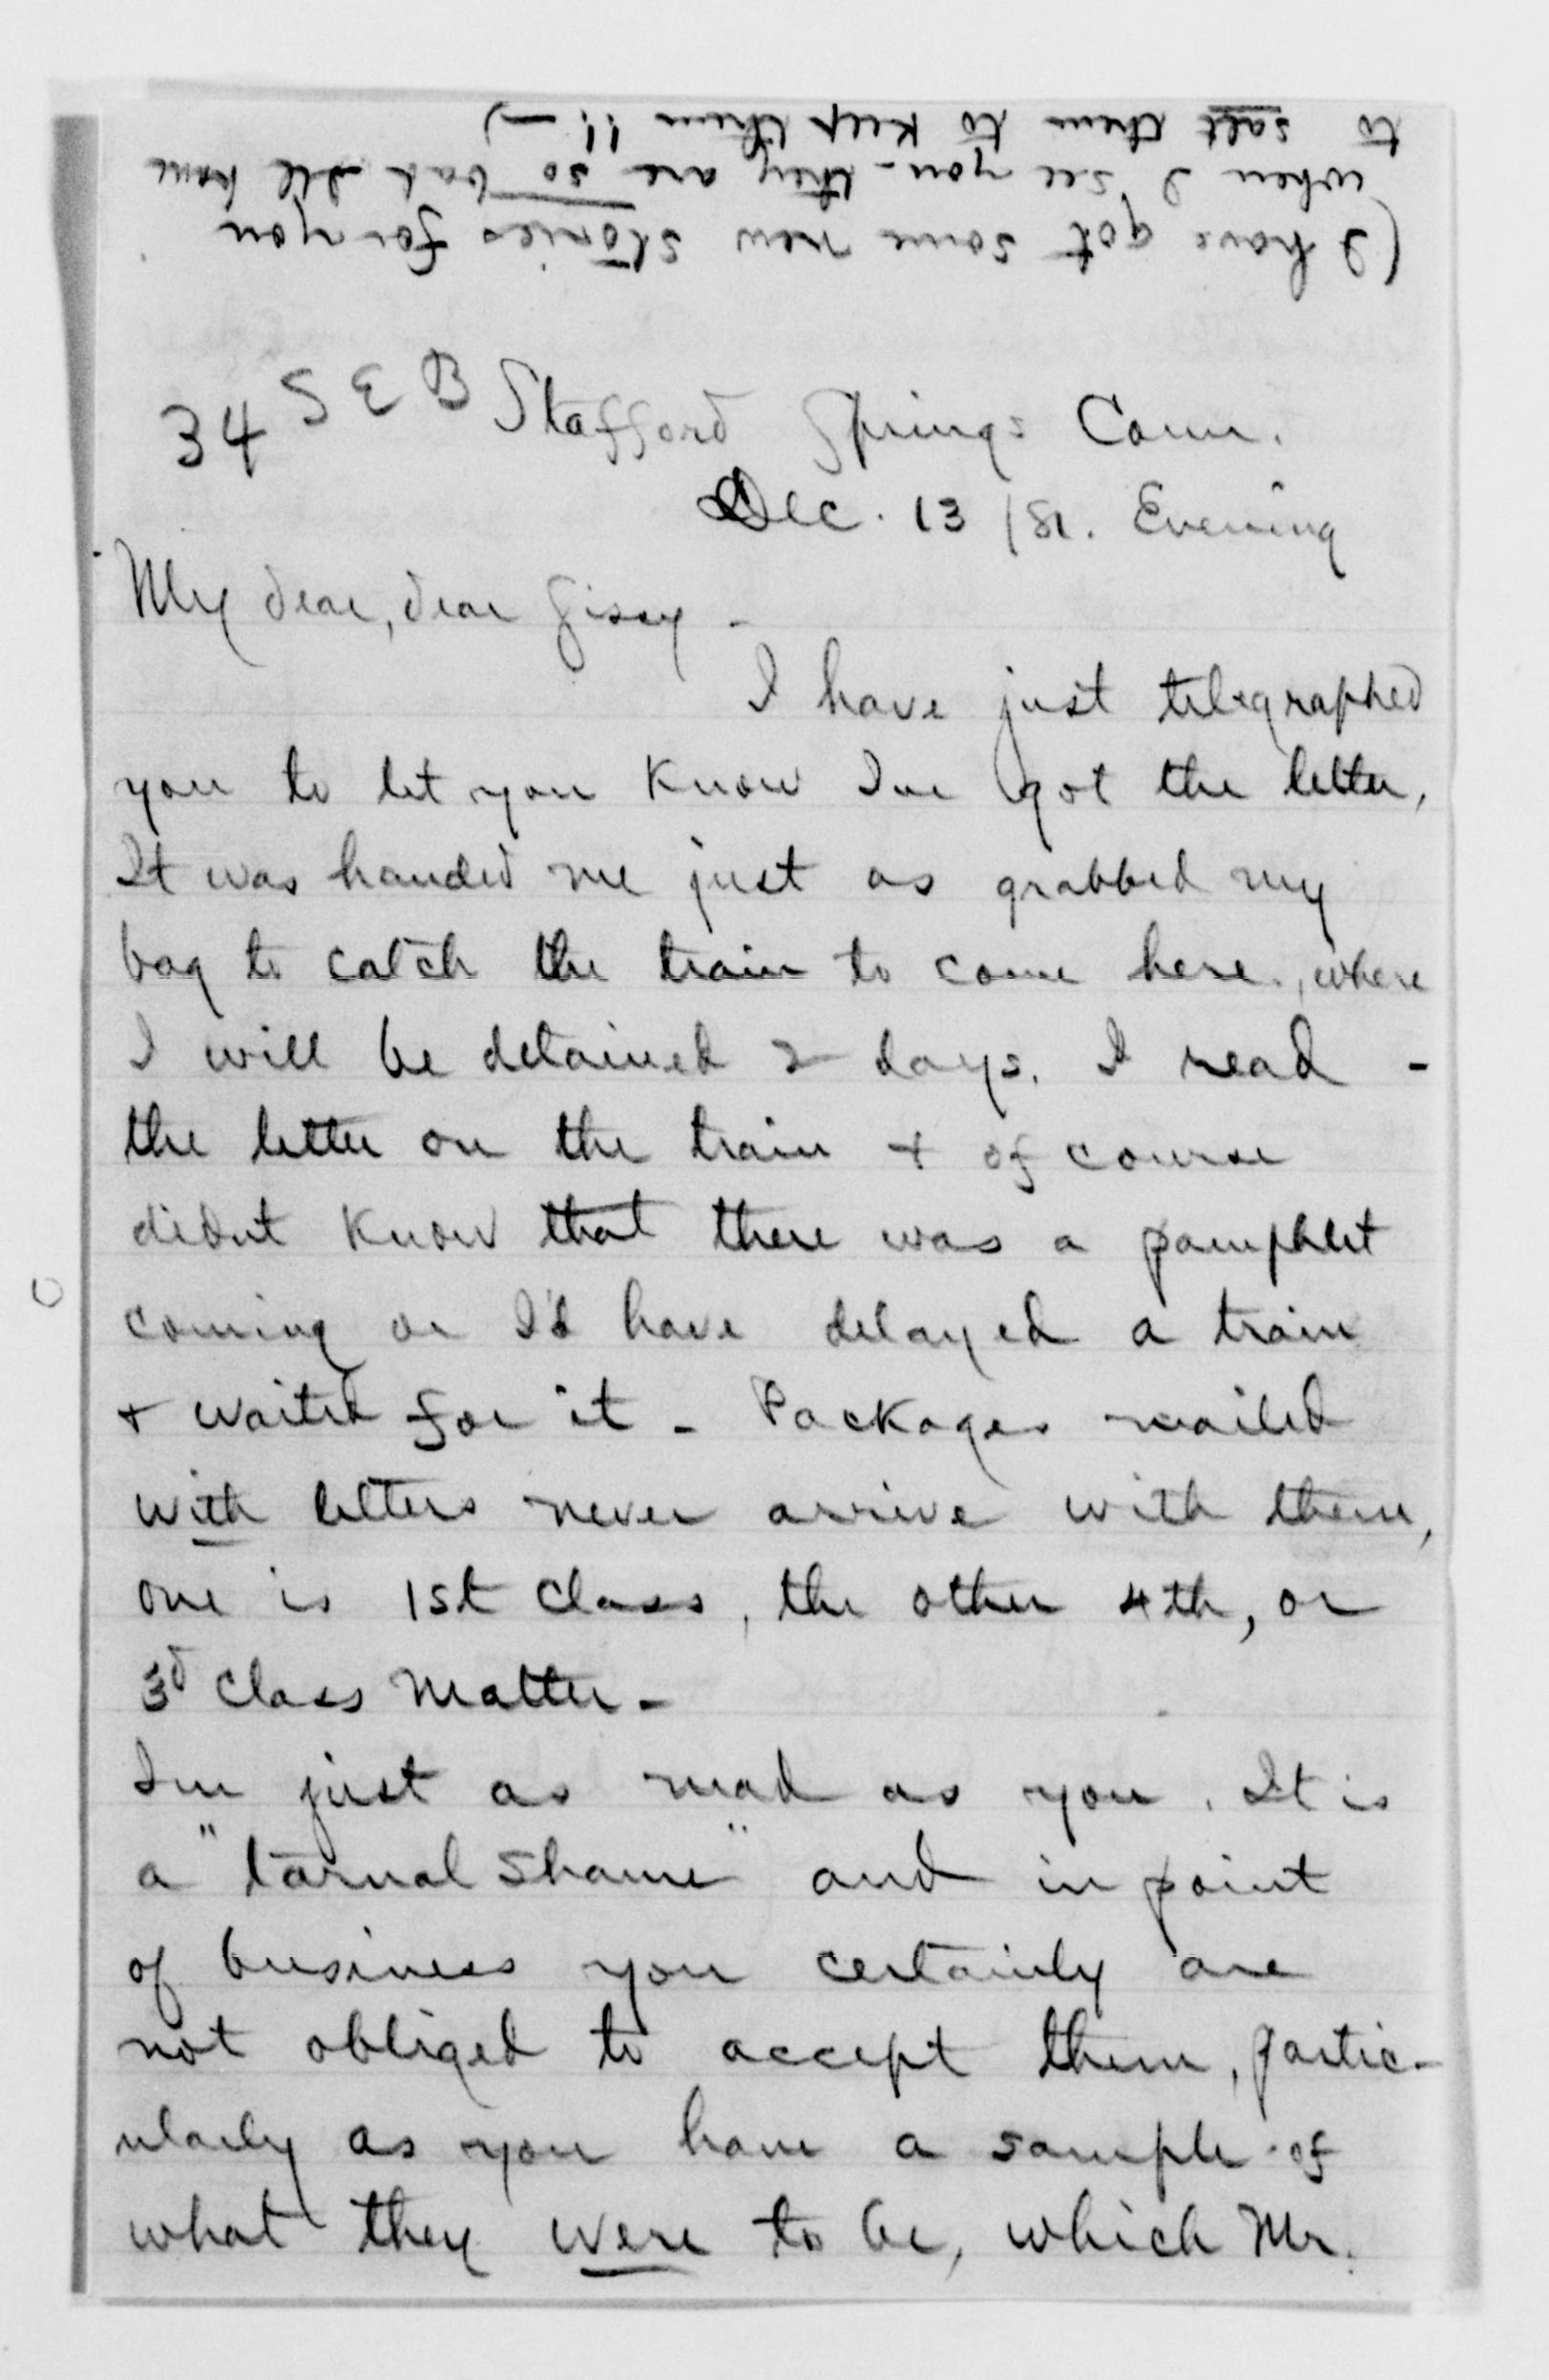 (I have got some new stories for you
when I see you - they are so bad I'll have
to salt them to keep them!! —)
34 S E B Stafford Springs Conn.
Dec. 13 /81. Evening
My dear, dear Sissy -
I have just telegraphed
you to let you know Ive got the letter,
It was handed me just as grabbed my
bag to catch the train to come here., where
I will be detained 2 days. I read -
the letter on the train + of course
didnt know that there was a pamphlet
coming or I'd have delayed a train
+ waited for it - Packages mailed
with letters never arrive with them,
one is 1st class, the other 4th, or
3d class matter -
Im just as mad as you. It is
a "tarnal shame" and in point
of business you certainly are
not obliged to accept them, partic-
ularly as you have a sample of
what they were to be, which Mr.